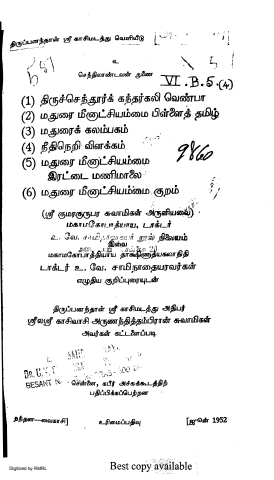 திருப்பனந்தாள் ஸ்ரீ காசிமடத்து வெளியீடு
உ
செந்திலாண்டவன் துணை
VI.B.5.(4)
(1) திருச்செந்தூர்க் கந்தர்கலி வெண்பா
(2) மதுரை மீனாட்சியம்மை பிள்ளைத் தமிழ்
(3) மதுரைக் கலம்பகம்
(4) நீதிநெறி விளக்கம்
9860
(5) மதுரை மீனாட்சியம்மை
இரட்டை மணிமாலை
(6) மதுரை மீனாட்சியம்மை குறம்
(ஸ்ரீ குமரகுருபர சுவாமிகள் அருளியவை)
மகாமகோபாத்தியாய, டாக்டர்
உ. வே. சாமிநாதையர் நூல் நிலையம்
இவை
மகாமகோபாத்தியாய தாக்ஷிணாத்யகலாநிதி
டாக்டர் உ. வே. சாமிநாதையரவர்கள்
எழுதிய குறிப்புரையுடன்
திருப்பனந்தாள் ஸ்ரீ காசிமடத்து அதிபர்
ஸ்ரீலஸ்ரீ காசிவாசி அருணந்தித்தம்பிரான் சுவாமிகள்
அவர்கள் கட்டளைப்படி
BESANT
சென்னை, கபீர் அச்சுக்கூடத்திற்
பதிப்பிக்கப்பெற்றன
நந்தன—வைகாசி]
உரிமைப்பதிவு
[ஜுன் 1952
Digitized by RMRL
Best copy available